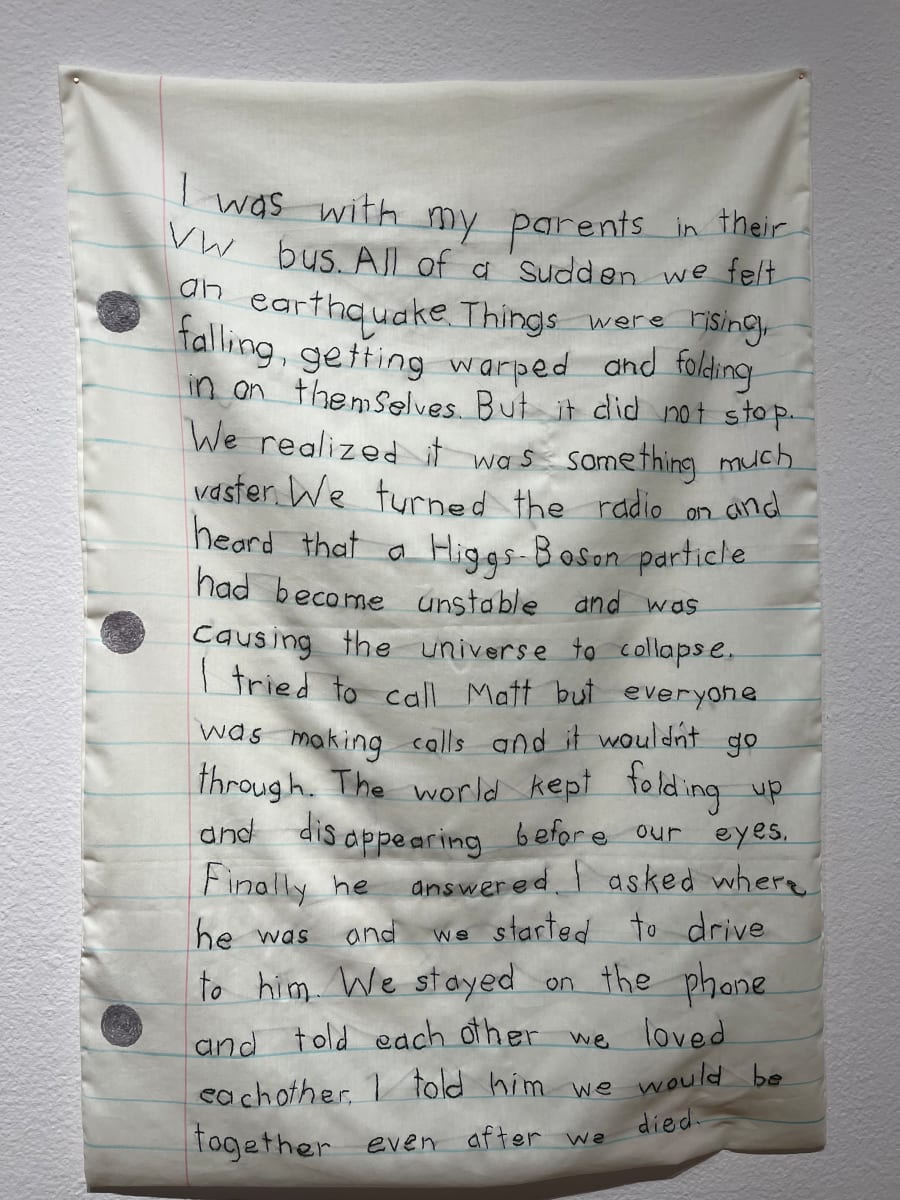 I was with my parents in their
VW bus. All of a sudden we felt
an earthquake. Things were rising,
falling, getting warped and folding
in on themselves. But it did not stop.
We realized it was something much
vaster. We turned the radio on and
heard that a Higgs-Boson particle
had become unstable and was
causing the universe to collapse.
I tried to call Matt but everyone
was making calls and it wouldn't go
through. The world kept folding up
and disappearing before our eyes.
Finally he answered. I asked where
he was and we started to drive
to him. We stayed on the phone
and told each other we loved
eachother. I told him we would be
together even after we died.